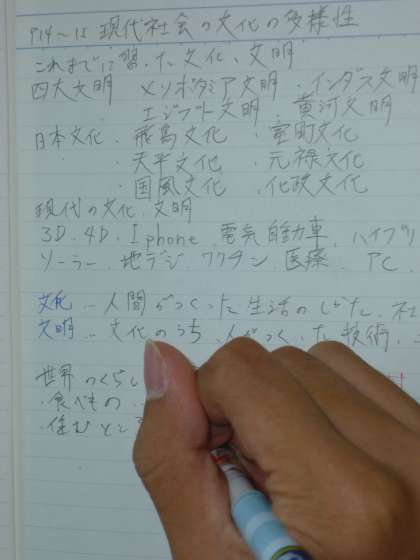 P14~15 現代社会の文化の多様性
これまでに習った文化、文明
四大文明 メソポタミア文明 ・インダス文明
エジプト文明 ・黄河文明
日本文化 ・飛鳥文化 ・室町文化
・天平文化 ・元禄文化
・国風文化 ・化政文化
現代の文化、文明
3D、4D、Iphone、電気自動車、ハイブリ
ソーラー、地デジ、ワクチン、医療、PC、
文化…人間がつくった生活のしかた、社
文明…文化のうち、人がつくった技術、
世界のくらし
・食べもの
・住むとこ